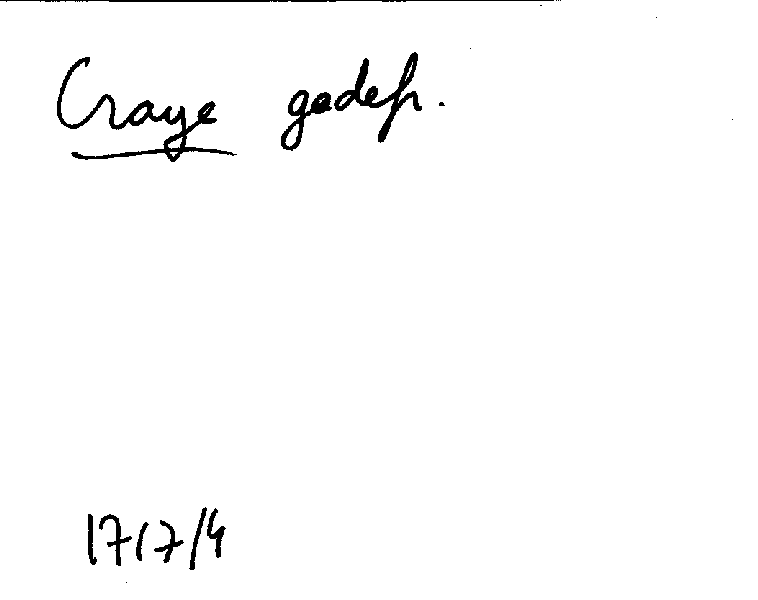 Craye godefr.
17/7/4